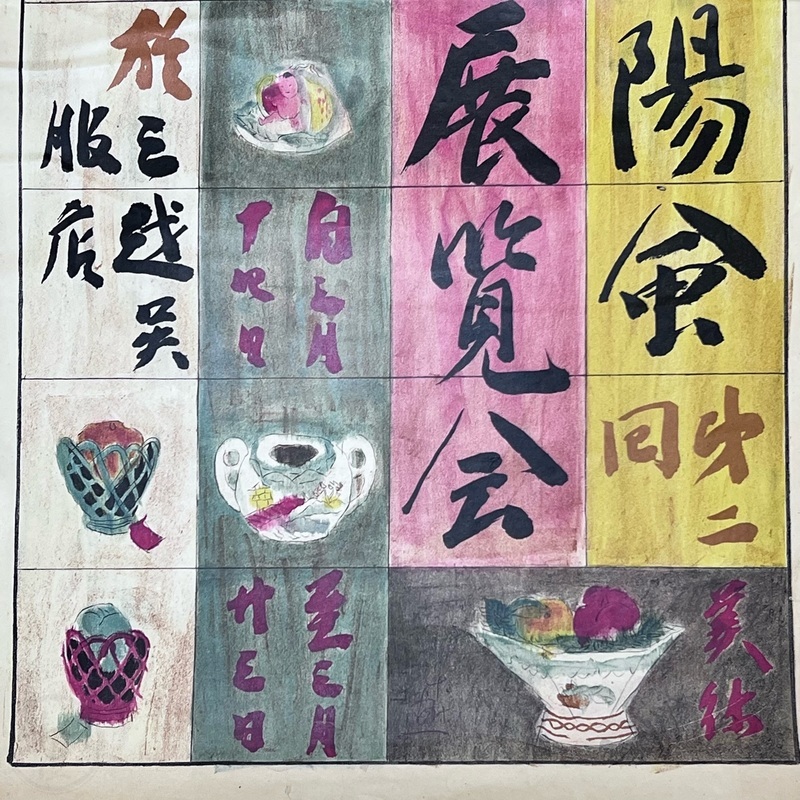 陽會
第二回
展覧会
自三月
十四日
至三月
廿三日
於三越呉
服店